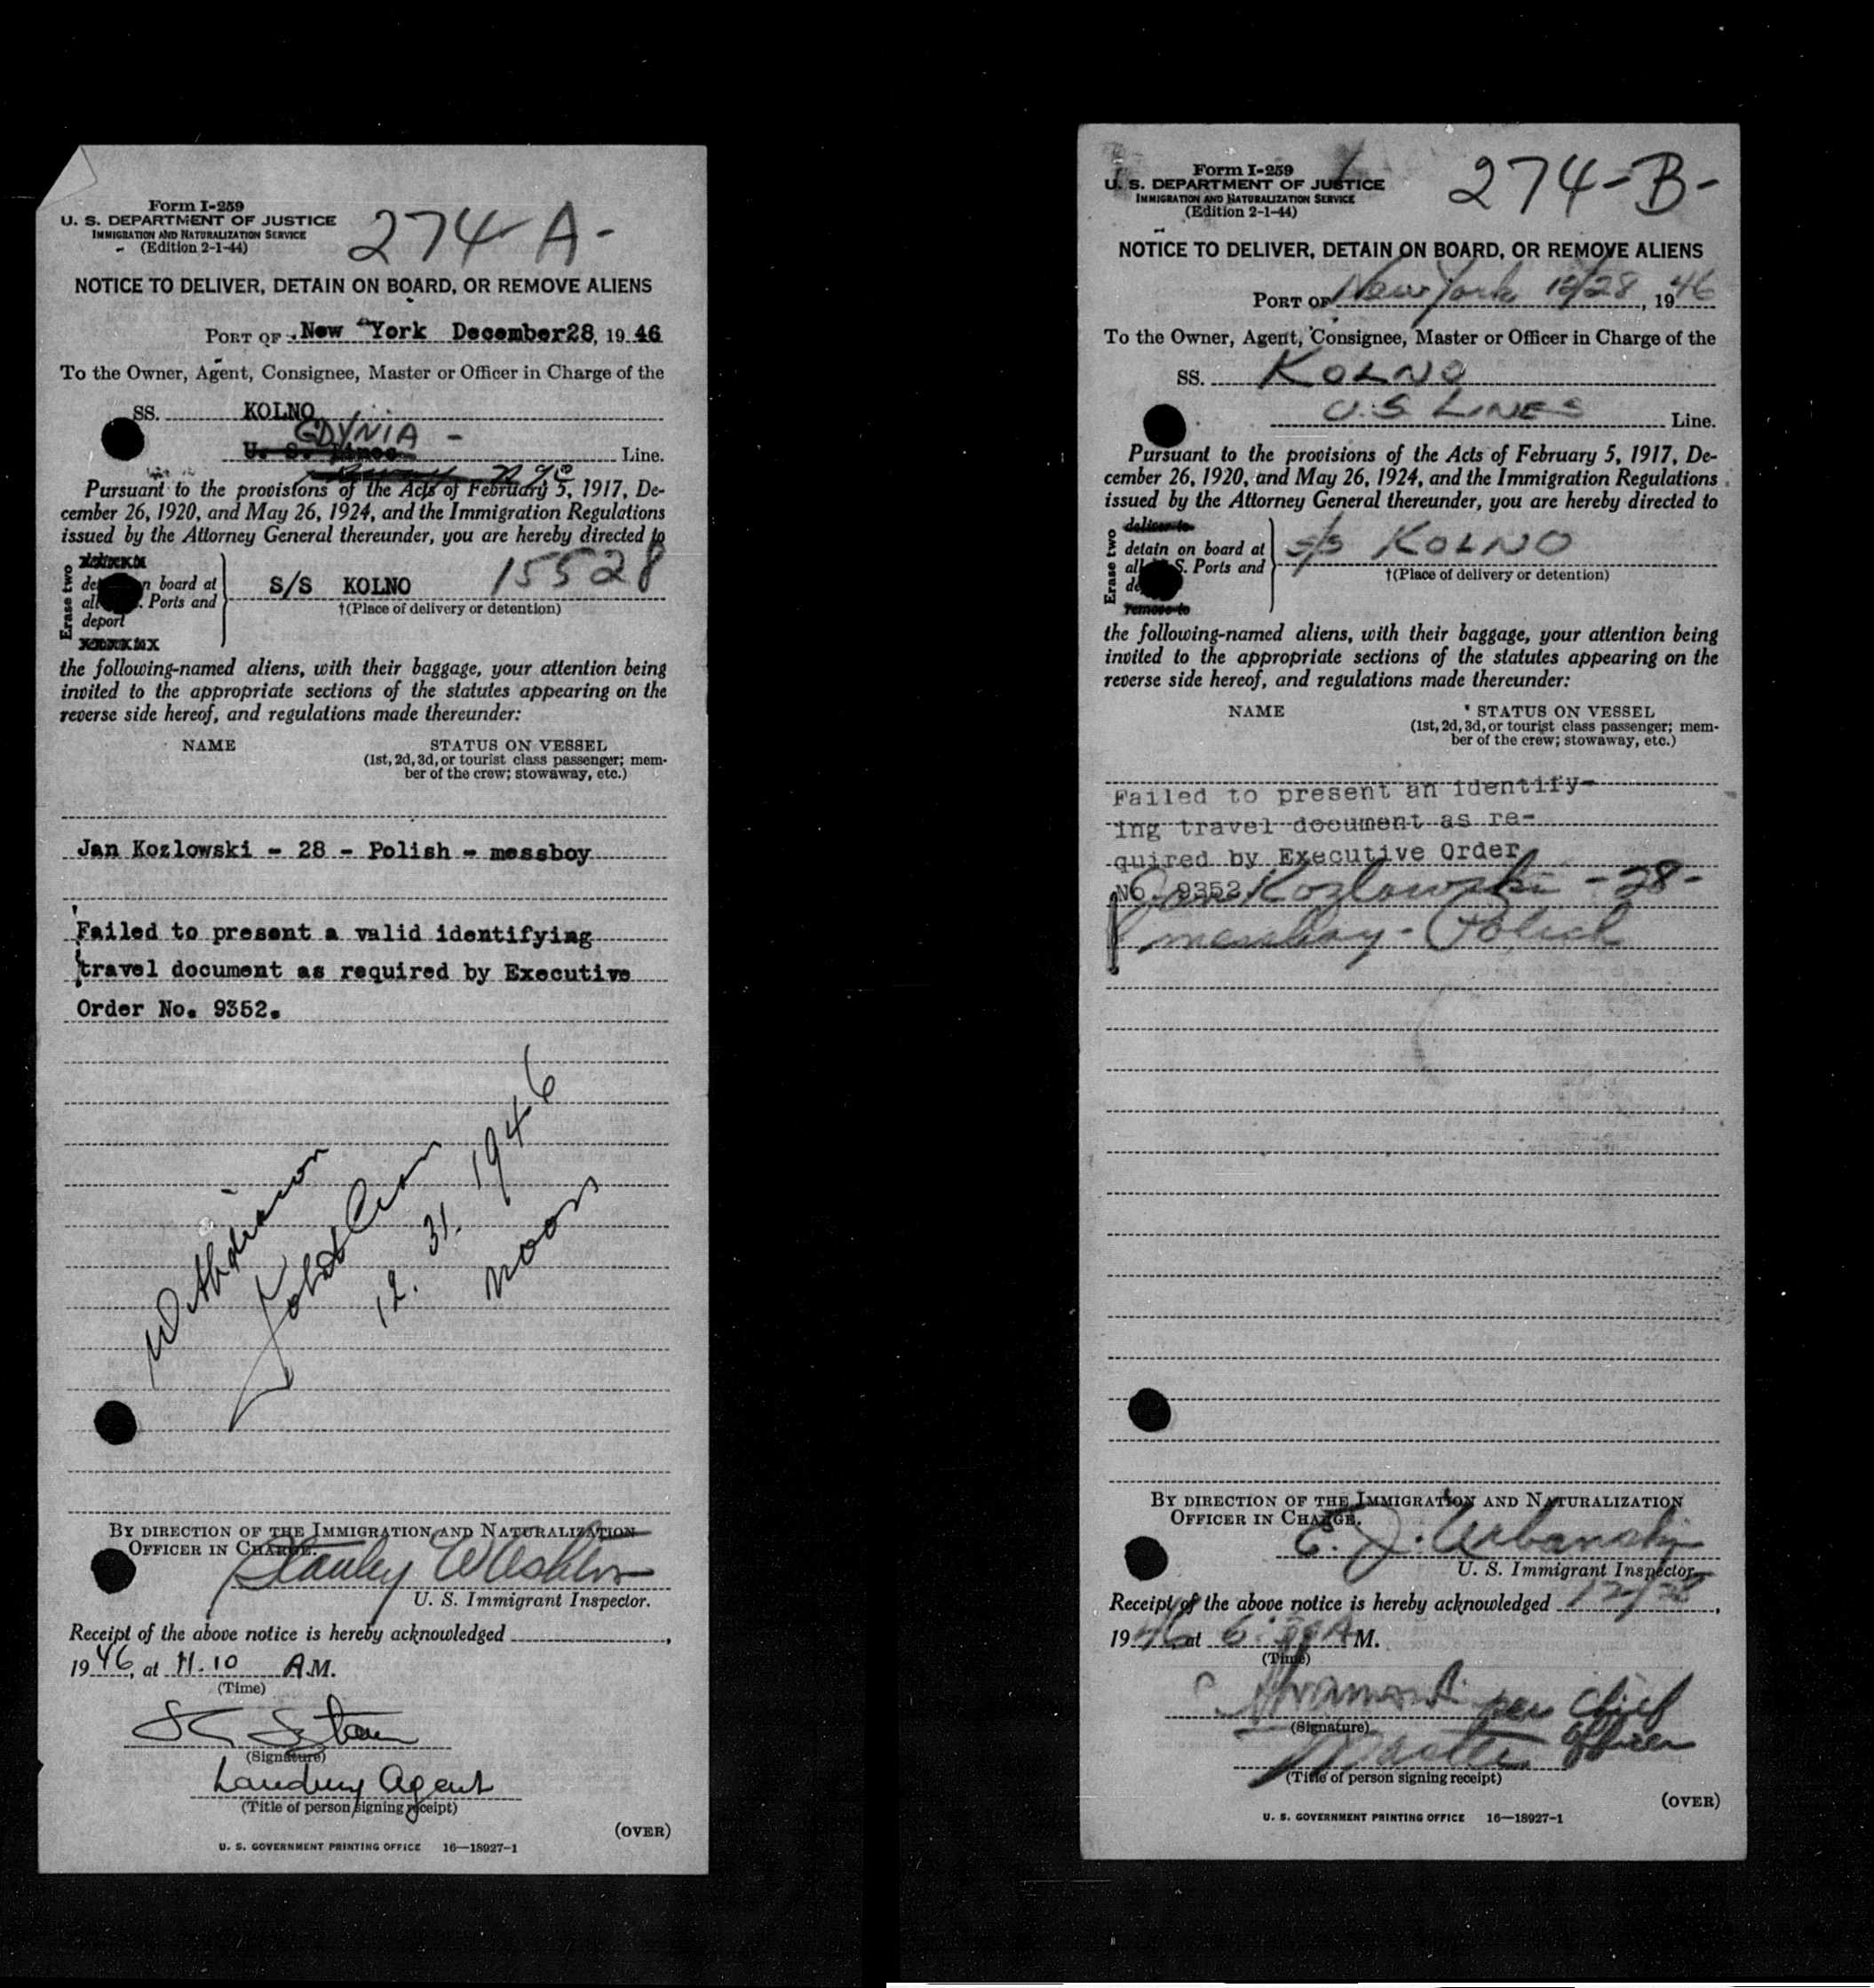 Form I-259
U. S. DEPARTMENT OF JUSTICE
IMMIGRATION AND NATURALIZATION SERVICE
(Edition 2-1-44)
274-A-
NOTICE TO DELIVER, DETAIN ON BOARD, OR REMOVE ALIENS
PORT OF New York December 28, 19 46
To the Owner, Agent, Consignee, Master or Officer in Charge of the
SS. KOLNO
GDYNIA -
U. S. Lines Line.
Pursuant to the provisions of the Acts of February 5, 1917, De-
cember 26, 1920, and May 26, 1924, and the Immigration Regulations
issued by the Attorney General thereunder, you are hereby directed to
Erase two
n board at
Ports and
deport
S/S KOLNO 15528
†(Place of delivery or detention)
the following-named aliens, with their baggage, your attention being
invited to the appropriate sections of the statutes appearing on the
reverse side hereof, and regulations made thereunder:
NAME STATUS ON VESSEL
(1st, 2d, 3d, or tourist class passenger; mem-
ber of the crew; stowaway, etc.)
Jan Kozlowski - 28 - Polish - messboy
Failed to present a valid identifying
travel document as required by Executive
Order No. 9352.
12. 31. 1946
noon
BY DIRECTION OF THE IMMIGRATION AND NATURALIZATION
OFFICER IN CHARGE.
Stanley
U. S. Immigrant Inspector.
Receipt of the above notice is hereby acknowledged
19 46, at 11.10 A.M.
(Time)
(Signature)
Landing Agent
(Title of person signing receipt)
(OVER)
U. S. GOVERNMENT PRINTING OFFICE 16—18927-1
Form I-259
U. S. DEPARTMENT OF JUSTICE
IMMIGRATION AND NATURALIZATION SERVICE
(Edition 2-1-44)
274-B-
NOTICE TO DELIVER, DETAIN ON BOARD, OR REMOVE ALIENS
PORT OF New York 12/28, 19 46
To the Owner, Agent, Consignee, Master or Officer in Charge of the
SS. KOLNO
U.S LINES Line.
Pursuant to the provisions of the Acts of February 5, 1917, De-
cember 26, 1920, and May 26, 1924, and the Immigration Regulations
issued by the Attorney General thereunder, you are hereby directed to
Erase two
deliver to
detain on board at
S. Ports and
remove to
S/S KOLNO
†(Place of delivery or detention)
the following-named aliens, with their baggage, your attention being
invited to the appropriate sections of the statutes appearing on the
reverse side hereof, and regulations made thereunder:
NAME STATUS ON VESSEL
(1st, 2d, 3d, or tourist class passenger; mem-
ber of the crew; stowaway, etc.)
Failed to present an identify-
ing travel document as re-
quired by Executive Order
No. 9352
Jan Kozlowski - 28 -
messboy - Polish
BY DIRECTION OF THE IMMIGRATION AND NATURALIZATION
OFFICER IN CHARGE.
E. J. Urbanski
U. S. Immigrant Inspector.
Receipt of the above notice is hereby acknowledged 12/28,
19 46 at 6:30 A M.
(Time)
per Chief
officer
(Signature)
Master
(Title of person signing receipt)
(OVER)
U. S. GOVERNMENT PRINTING OFFICE 16—18927-1